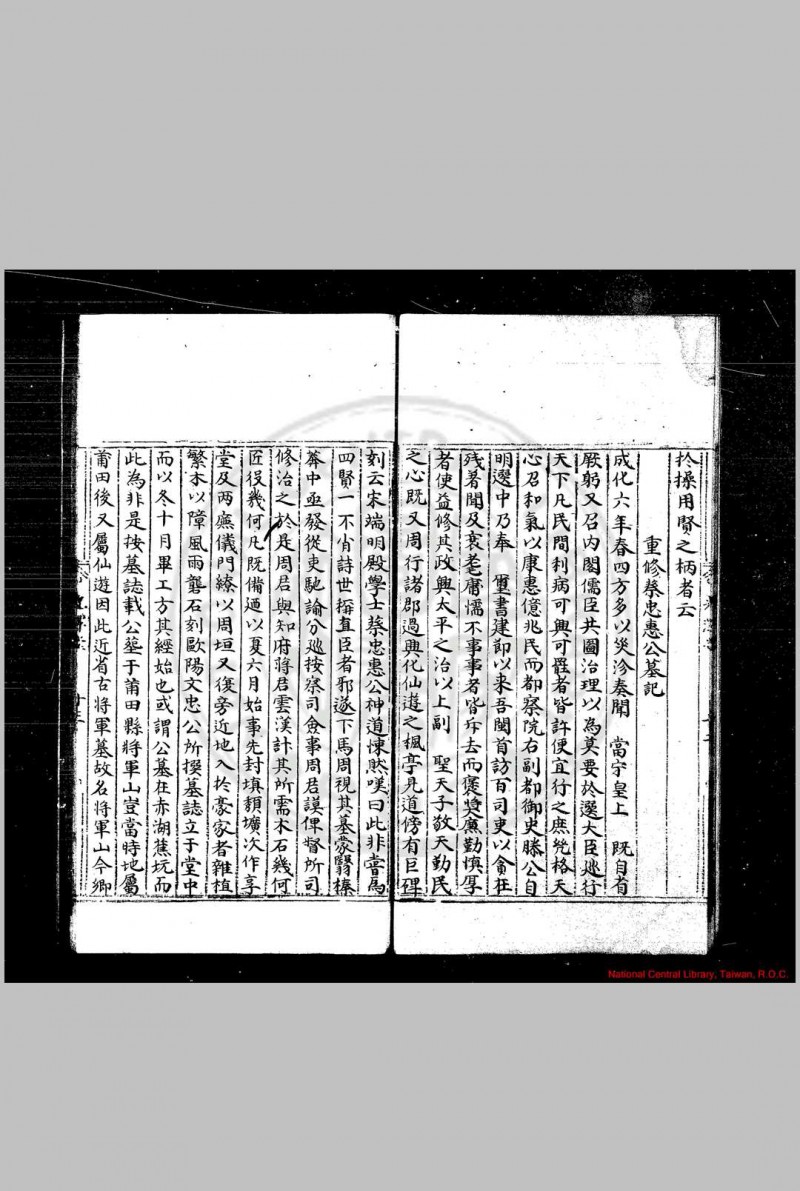 扵操用賢之柄者云
重修蔡忠惠公墓記
成化六年春四方多以災沴奏聞 當宁皇上 既自省
厥躬又召内閣儒臣共圖治理以為莫要於選大臣廵行
天下凡民間利病可興可罷者皆許便宜行之庶㡬格天
心召和氣以康惠億兆民而都察院右副都御史滕公自
明選中乃奉 璽書建節以來吾閩首訪百司吏以貪在
殘著聞及衰老庸懦不事事者皆斥去而褒奬廉勤慎厚
者使益修其政興太平之治以上副 聖天子敬天勤民
之心既又周行諸郡過興化仙遊之楓亭見道傍有巨碑
刻云宋端明殿學士蔡忠惠公神道悚然嘆曰此非嘗為
四賢一不肖詩世稱直臣者邪遂下馬周視其墓蒙翳榛
莽中亟發從吏馳諭分廵按察司僉事周君謨俾督所司
修治之於是周君與知府蔣君雲漢計其所需木石幾何
匠役幾何凡既備廼以夏六月始事先封填頽壙次作享
堂及兩廡儀門繚以周垣又復旁近地入扵豪家者雜植
繁木以障風雨礱石刻歐陽文忠公所撰墓誌立于堂中
而以冬十月畢工方其經始也或謂公墓在赤湖蕉坑而
此為非是按墓誌載公塟于莆田縣將軍山豈當時地屬
莆田後又屬仙遊因此近省古將軍墓故名將軍山今鄉
National Central Library, Taiwan, R.O.C.